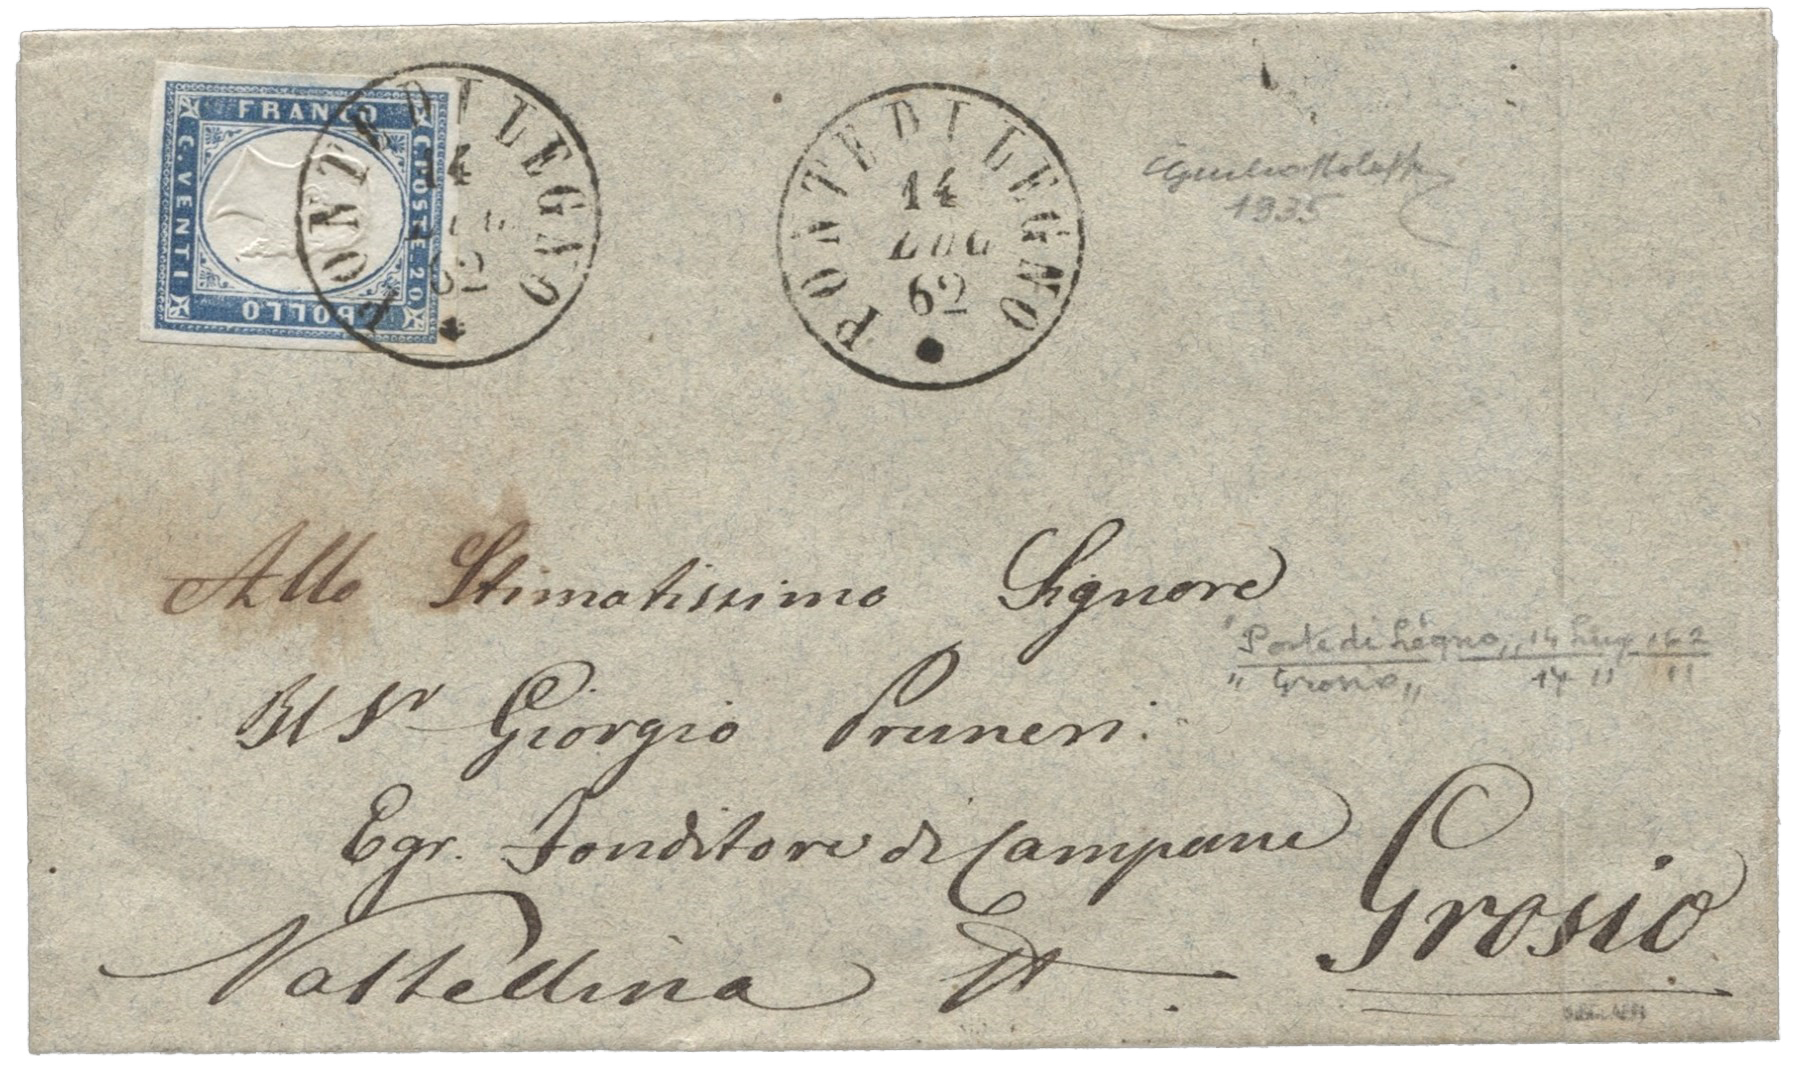 FRANCO
C. POSTE 20
BOLLO
C. VENTI
PONTE DI LEGNO
14
LUG
62
PONTE DI LEGNO
14
LUG
62
1935
Allo Stimatissimo Signore
Il Sr Giorgio Pruneri
"Ponte di Legno,, 14 Lug 162
" Grosio,, 17 " "
Egr. Fonditore di Campane
Grosio
Valtellina